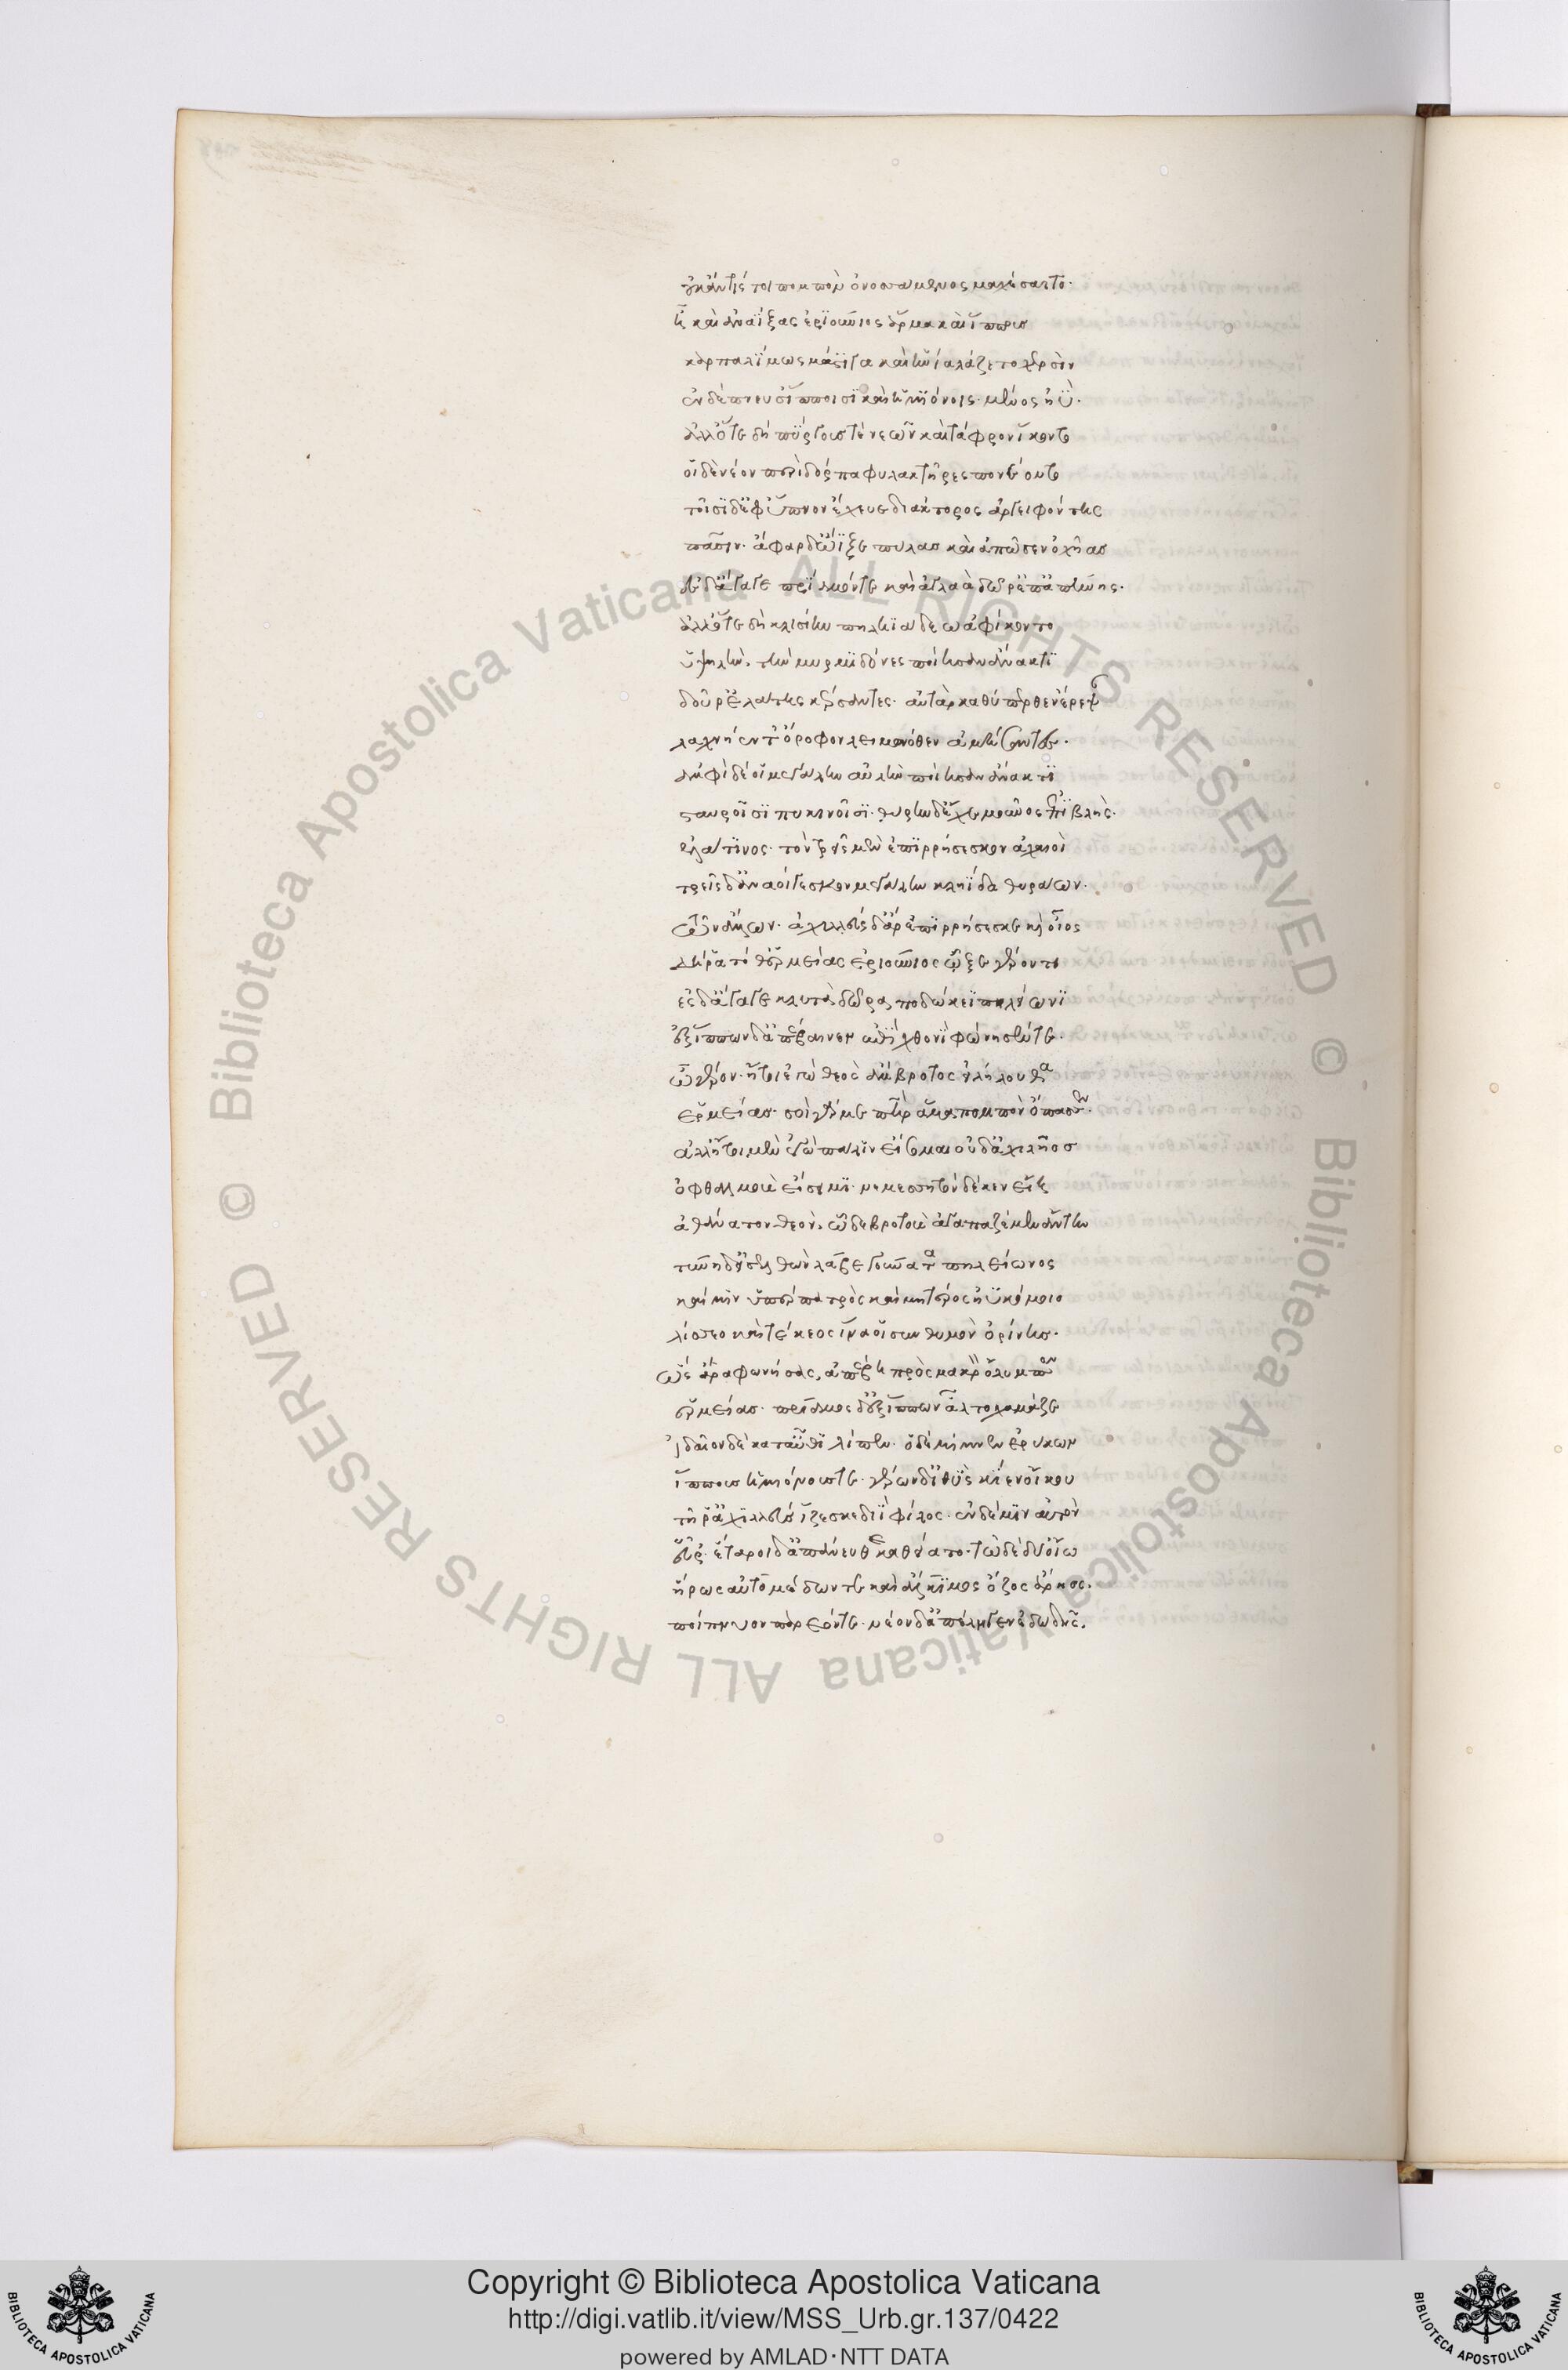 οὐκ ἄν τίς τοι πομπὸν ὀνοσσάμενος μαχέσαιτο·
ἦ καὶ ἀναΐξας ἐριούνιος ἅρμα καὶ ἵππους
καρπαλίμως μάστιγα καὶ ἡνία λάζετο χερσὶν
ἐν δ' ἔπνευσ' ἵπποισι καὶ ἡμιόνοις μένος ἠΰ·
ἀλλ' ὅτε δὴ πύργους τε νεῶν καὶ τάφρον ἵκοντο
οἱ δὲ νέον περὶ δόρπα φυλακτῆρες πονέοντο
τοῖσι δ' ἐφ' ὕπνον ἔχευε διάκτορος ἀργειφόντης
πᾶσιν· ἄφαρ δ' ὤϊξε πύλας καὶ ἀπῶσεν ὀχῆας
ἐς δ' ἄγαγε πρίαμόν τε καὶ ἀγλαὰ δῶρ' ἐπ' ἀπήνης·
ἀλλ' ὅτε δὴ κλισίην πηληϊάδεω ἀφίκοντο
ὑψηλὴν, τὴν μυρμιδόνες ποίησαν ἄνακτι
δοῦρ' ἐλάτης κέρσαντες· αὐτὰρ καθύπερθεν ἔρεψαν
λαχνήεντ' ὄροφον λειμωνόθεν ἀμήσαντες·
ἀμφὶ δέ οἱ μεγάλην αὐλὴν ποίησαν ἄνακτι
σταυροῖσι πυκινοῖσι· θύρην δ' ἔχε μοῦνος ἐπιβλὴς
εἰλάτινος· τὸν τρεῖς μὲν ἐπιρρήσεσκον ἀχαιοὶ
τρεῖς δ' ἀναοίγεσκον μεγάλην κληῖδα θυράων·
τῶν ἄλλων· ἀχιλλεὺς δ' ἄρ' ἐπιρρήσεσκε καὶ οἶος
δή ῥα τόθ' ἑρμείας ἐριούνιος ᾦξε γέροντι
ἐς δ' ἄγαγε κλυτὰ δῶρα ποδώκεϊ πηλείωνι
ἐξ ἵππων δ' ἀπέβαινεν ἐπὶ χθονὶ φώνησέν τε·
ὦ γέρον· ἤτοι ἐγὼ θεὸς ἄμβροτος εἰλήλουθα
ἑρμείας· σοὶ γάρ με πατὴρ ἅμα πομπὸν ὄπασσεν·
ἀλλ' ἤτοι μὲν ἐγὼ πάλιν εἴσομαι οὐδ' ἀχιλῆος
ὀφθαλμοὺς εἴσειμι· νεμεσσητὸν δέ κεν εἴη
ἀθάνατον θεὸν ὧδε βροτοὺς ἀγαπαζέμεν ἄντην
τύνη δ' εἰσελθὼν λαβὲ γούνατα πηλείωνος
καί μιν ὑπὲρ πατρὸς καὶ μητέρος ἠϋκόμοιο
λίσσεο καὶ τέκεος ἵνα οἱ σὺν θυμὸν ὀρίνῃς·
ὣς ἄρα φωνήσας, ἀπέβη πρὸς μακρὸν ὄλυμπον
ἑρμείας· πρίαμος δ' ἐξ ἵππων ἆλτο χαμᾶζε
ἰδαῖον δὲ κατ' αὖθι λίπεν· ὁ δὲ μίμνεν ἐρύκων
ἵππους ἡμιόνους τε· γέρων δ' ἰθὺς κίεν οἴκου
τῇ ῥ' ἀχιλλεὺς ἵζεσκε διῒ φίλος· ἐν δέ μιν αὐτὸν
εὗρ'· ἕταροι δ' ἀπάνευθε καθείατο· τὼ δὲ δύ' οἴω
ἥρως αὐτομέδων τε καὶ ἄλκιμος ὄζος ἄρηος·
ποίπνυον παρεόντε· νέον δ' ἀπέληγεν ἐδωδῆς·